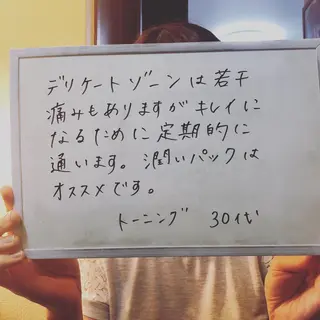 デリケートゾーンは若干
痛みもありますがキレイに
なるために定期的に
通います。潤いパックは
オススメです。
トーニング 30代